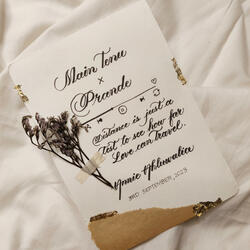 Main Tenu
x
Prande
Distance is just a
test to see how far
Love can travel.
Annie Ahluwalia
3RD SEPTEMBER, 2023